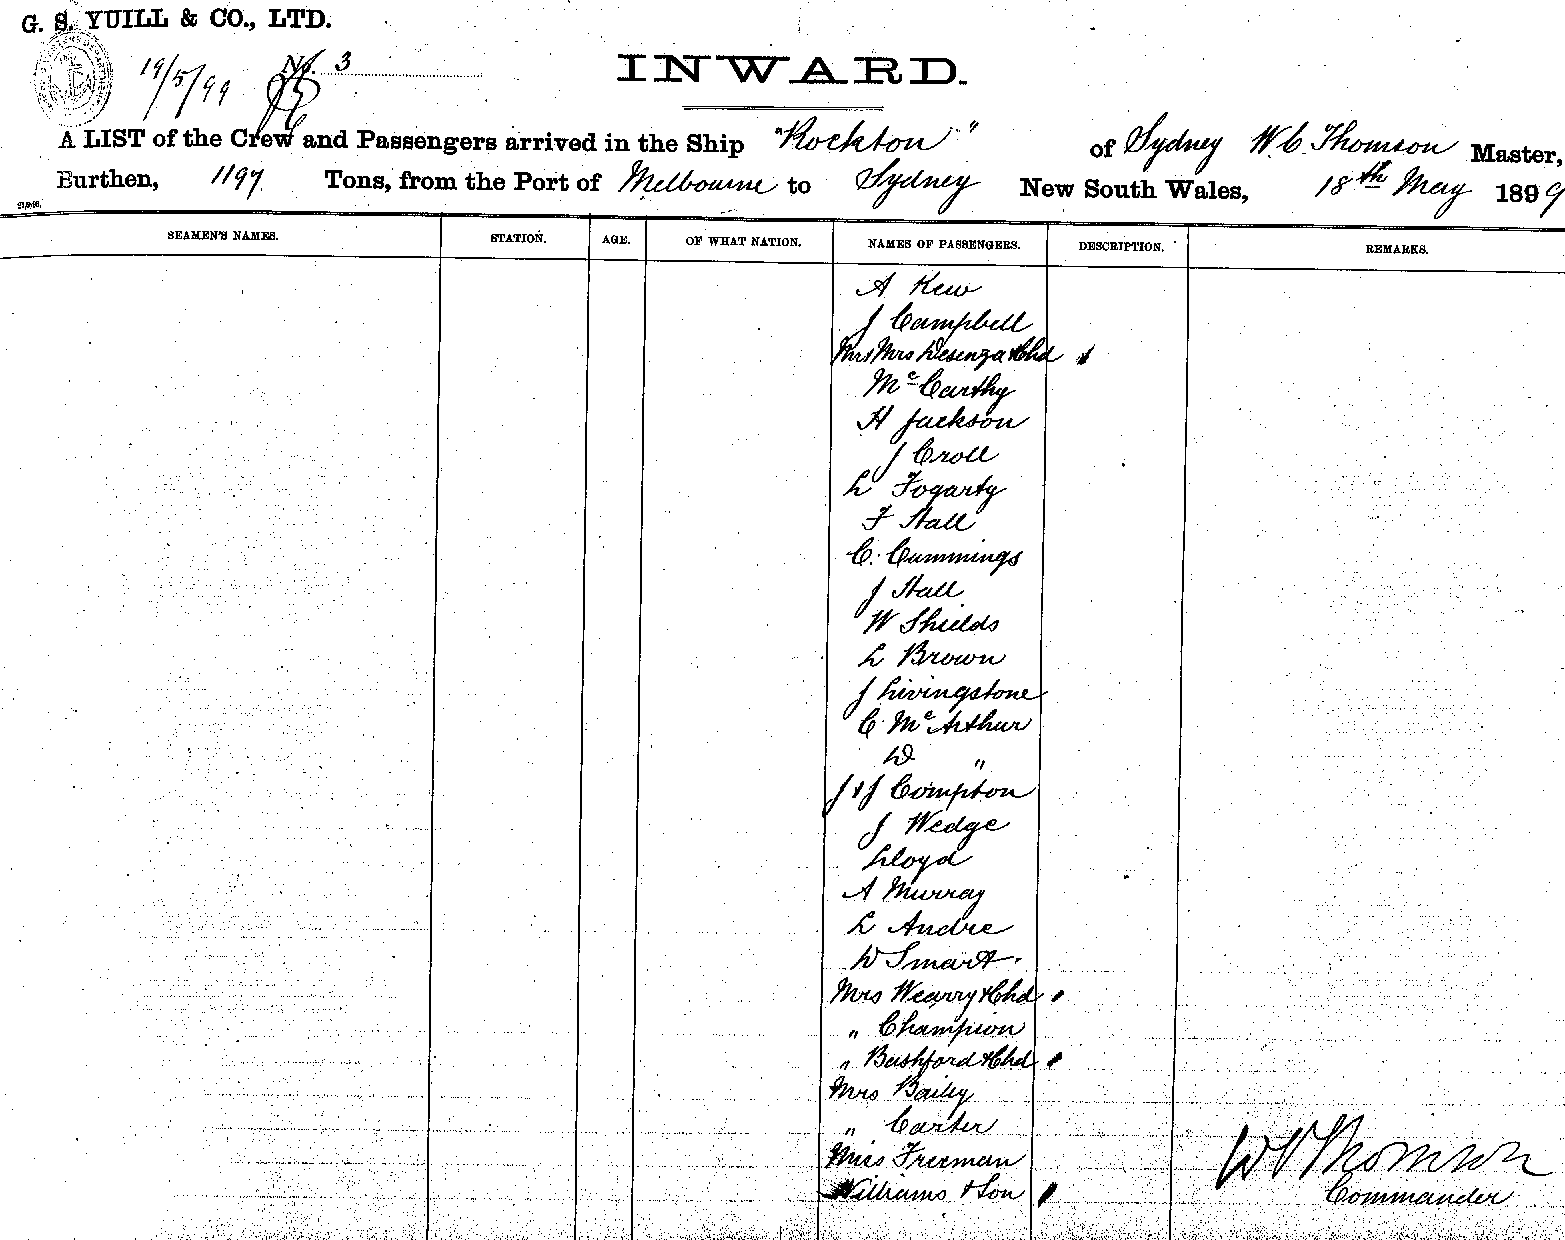 G. S. YUILL & CO., LTD.
19/5/99 No. 3
INWARD.
A LIST of the Crew and Passengers arrived in the Ship "Rockton" of Sydney W. C. Thomson Master,
Burthen, 1197 Tons, from the Port of Melbourne to Sydney New South Wales, 18th May 1899
SEAMEN'S NAMES. STATION. AGE. OF WHAT NATION. NAMES OF PASSENGERS. DESCRIPTION. REMARKS.
A Kew
J Campbell
Mrs Desenza & Chd
McCarthy
H Jackson
J Croll
L Fogarty
F Hall
C. Cummings
J Hall
W Shields
L Brown
J Livingstone
C McArthur
D "
J & J Compton
J Wedge
Lloyd
A Murray
L Andre
W Smart
Mrs Wearry & Chd
" Champion
" Bashford & Chd
Mrs Bailey
" Carter
Miss Freeman
Williams & Son
W C Thomson
Commander